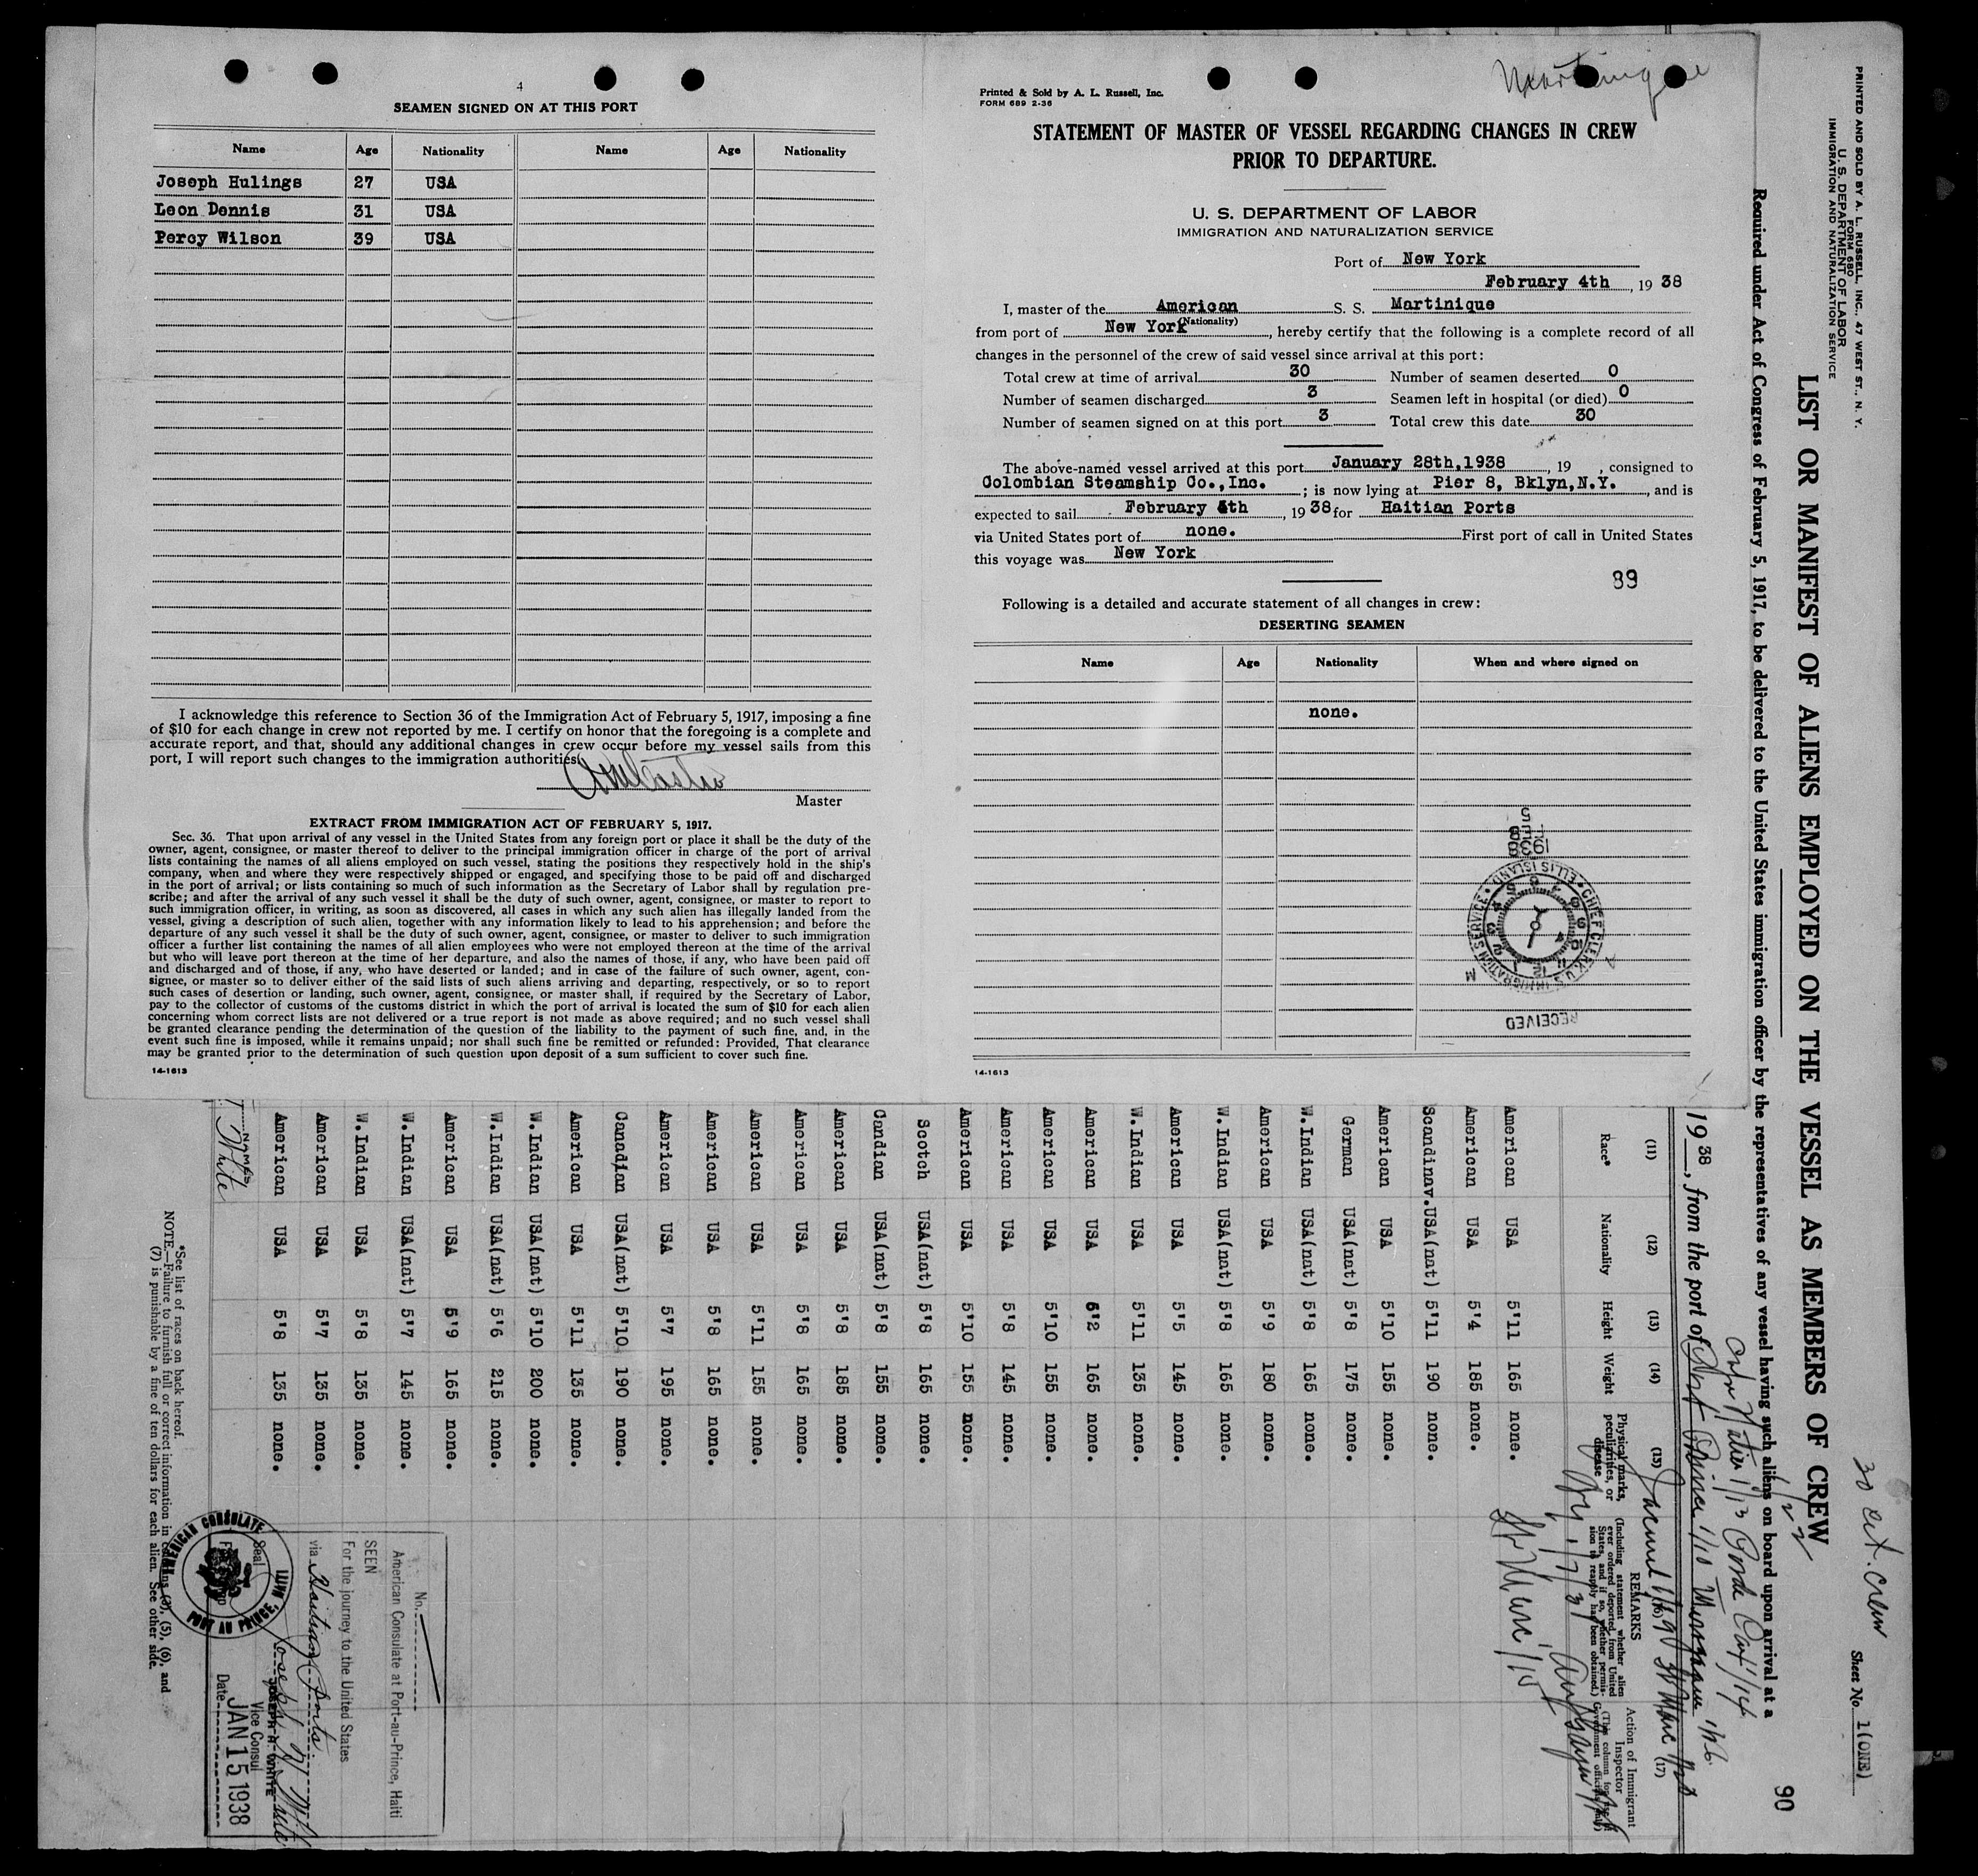 4
SEAMEN SIGNED ON AT THIS PORT
Name Age Nationality Name Age Nationality
Joseph Hulings 27 USA
Leon Dennis 31 USA
Percy Wilson 39 USA
I acknowledge this reference to Section 36 of the Immigration Act of February 5, 1917, imposing a fine
of $10 for each change in crew not reported by me. I certify on honor that the foregoing is a complete and
accurate report, and that, should any additional changes in crew occur before my vessel sails from this
port, I will report such changes to the immigration authorities.
Master
EXTRACT FROM IMMIGRATION ACT OF FEBRUARY 5, 1917.
Sec. 36. That upon arrival of any vessel in the United States from any foreign port or place it shall be the duty of the
owner, agent, consignee, or master thereof to deliver to the principal immigration officer in charge of the port of arrival
lists containing the names of all aliens employed on such vessel, stating the positions they respectively hold in the ship's
company, when and where they were respectively shipped or engaged, and specifying those to be paid off and discharged
in the port of arrival; or lists containing so much of such information as the Secretary of Labor shall by regulation pre-
scribe; and after the arrival of any such vessel it shall be the duty of such owner, agent, consignee, or master to report to
such immigration officer, in writing, as soon as discovered, all cases in which any such alien has illegally landed from the
vessel, giving a description of such alien, together with any information likely to lead to his apprehension; and before the
departure of any such vessel it shall be the duty of such owner, agent, consignee, or master to deliver to such immigration
officer a further list containing the names of all alien employees who were not employed thereon at the time of the arrival
but who will leave port thereon at the time of her departure, and also the names of those, if any, who have been paid off
and discharged and of those, if any, who have deserted or landed; and in case of the failure of such owner, agent, con-
signee, or master so to deliver either of the said lists of such aliens arriving and departing, respectively, or so to report
such cases of desertion or landing, such owner, agent, consignee, or master shall, if required by the Secretary of Labor,
pay to the collector of customs of the customs district in which the port of arrival is located the sum of $10 for each alien
concerning whom correct lists are not delivered or a true report is not made as above required; and no such vessel shall
be granted clearance pending the determination of the question of the liability to the payment of such fine, and, in the
event such fine is imposed, while it remains unpaid; nor shall such fine be remitted or refunded: Provided, That clearance
may be granted prior to the determination of such question upon deposit of a sum sufficient to cover such fine.
14-1613
Martinique
Printed & Sold by A. L. Russell, Inc.
FORM 689 2-36
STATEMENT OF MASTER OF VESSEL REGARDING CHANGES IN CREW
PRIOR TO DEPARTURE.
U. S. DEPARTMENT OF LABOR
IMMIGRATION AND NATURALIZATION SERVICE
Port of New York
February 4th, 1938
I, master of the American S. S. Martinique
(Nationality)
from port of New York, hereby certify that the following is a complete record of all
changes in the personnel of the crew of said vessel since arrival at this port:
Total crew at time of arrival 30 Number of seamen deserted 0
Number of seamen discharged 3 Seamen left in hospital (or died) 0
Number of seamen signed on at this port 3 Total crew this date 30
The above-named vessel arrived at this port January 28th,1938, 19 , consigned to
Colombian Steamship Co.,Inc.; is now lying at Pier 8, Bklyn,N.Y., and is
expected to sail February 5th, 1938 for Haitian Ports
via United States port of none. First port of call in United States
this voyage was New York
89
Following is a detailed and accurate statement of all changes in crew:
DESERTING SEAMEN
Name Age Nationality When and where signed on
none.
1938
CHIEF CLERK U. S. IMMIGRATION SERVICE ELLIS ISLAND
RECEIVED
14-1613
PRINTED AND SOLD BY A. L. RUSSELL, INC., 47 WEST ST., N. Y.
FORM 680
U. S. DEPARTMENT OF LABOR
IMMIGRATION AND NATURALIZATION SERVICE
30 cit. crew
Sheet No. 1(ONE)
90
LIST OR MANIFEST OF ALIENS EMPLOYED ON THE VESSEL AS MEMBERS OF CREW
Required under Act of Congress of February 5, 1917, to be delivered to the United States immigration officer by the representatives of any vessel having such aliens on board upon arrival at a
1938, from the port of Port Prince 1/10
(11) (12) (13) (14) (15) (16) (17)
Race* Nationality Height Weight Physical marks, peculiarities, or disease
REMARKS (Including statement whether alien ever ordered deported from United States, and if so, whether permission to reapply has been obtained.)
Action of Immigrant Inspector
American USA 5'11 165 none.
American USA 5'4 185 none.
Scandinav. USA(nat) 5'11 190 none.
American USA 5'10 155 none.
German USA(nat) 5'8 175 none.
W.Indian USA(nat) 5'8 165 none.
American USA 5'9 180 none.
W.Indian USA(nat) 5'8 165 none.
American USA 5'5 145 none.
W.Indian USA 5'11 135 none.
American USA 6'2 165 none.
American USA 5'10 155 none.
American USA 5'8 145 none.
American USA 5'10 155 none.
Scotch USA(nat) 5'8 165 none.
Candian USA(nat) 5'8 155 none.
American USA 5'8 185 none.
American USA 5'8 165 none.
American USA 5'11 155 none.
American USA 5'8 165 none.
American USA 5'7 195 none.
Canadian USA(nat) 5'10 190 none.
American USA 5'11 135 none.
W.Indian USA(nat) 5'10 200 none.
W.Indian USA(nat) 5'6 215 none.
American USA 5'9 165 none.
W.Indian USA(nat) 5'7 145 none.
W.Indian USA 5'8 135 none.
American USA 5'7 135 none.
American USA 5'8 135 none.
White
No.
American Consulate at Port-au-Prince, Haiti
SEEN
For the journey to the United States
via Haitian Ports.
Joseph N. White
Vice Consul
Date JAN 15 1938
AMERICAN CONSULATE PORT AU PRINCE, HAITI
Seal
*See list of races on back hereof.
NOTE.—Failure to furnish full or correct information in columns (3), (5), (6), and
(7) is punishable by a fine of ten dollars for each alien. See other side.